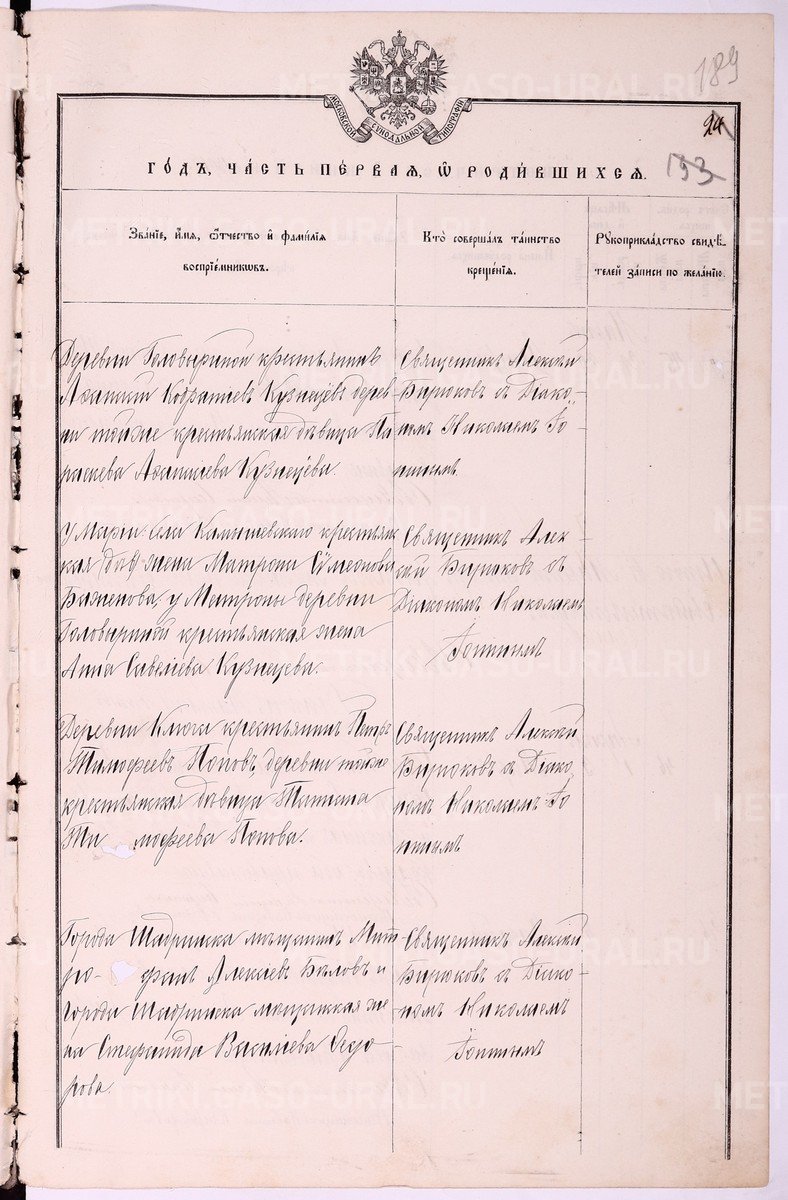 189
24
193
МОСКОВСКОЙ СѴНОДАЛЬНОЙ ТИПОГРАФІИ
ГО́ДЪ, ЧА́СТЬ ПЕ́РВАѦ, Ѽ РОДИ́ВШИХСѦ.
Зва́нїе, и҆́мѧ, ѻ҆́тчество и҆ фами́лїѧ
воспрїе́мникѡвъ.
Кто̀ соверша́лъ та́инство
креще́нїѧ.
Рꙋкоприкла́дство свидѣ́-
телей за́писи по жела́нїю.
Деревни Головыриной крестьянинъ
Аѳанасій Кузнецовъ дерев
ни тойже крестьянская дѣвица Па
раскева Аѳанасіева Кузнецева.
Священникъ Алексій
Бирюковъ съ Діако-
номъ Николаемъ
У Маріи: Села Камышевскаго крестьян
ская жена Матрона Сѷмеонова
Баженова. у Матроны деревни
Головыриной крестьянская жена
Анна Савеліева Кузнецева.
Священникъ Алек-
сій Бирюковъ съ
Діакономъ Николаемъ
Деревни Ключа крестьянинъ Петръ
Тимофеевъ Поповъ, деревни тойже
крестьянская дѣвица Татіана
Ти мофеева Попова.
Священникъ Алексій
Бирюковъ съ Діако
номъ Николаемъ
Города Шадринска мѣщанинъ Мит
ро- фанъ Алексіевъ Баловъ и
города Шадринска мѣщанская же
на Стефанида Василіева Ѳедо
рова.
Священникъ Алексій
Бирюковъ съ Діако
номъ Николаемъ
METRIKI.GASO-URAL.RU